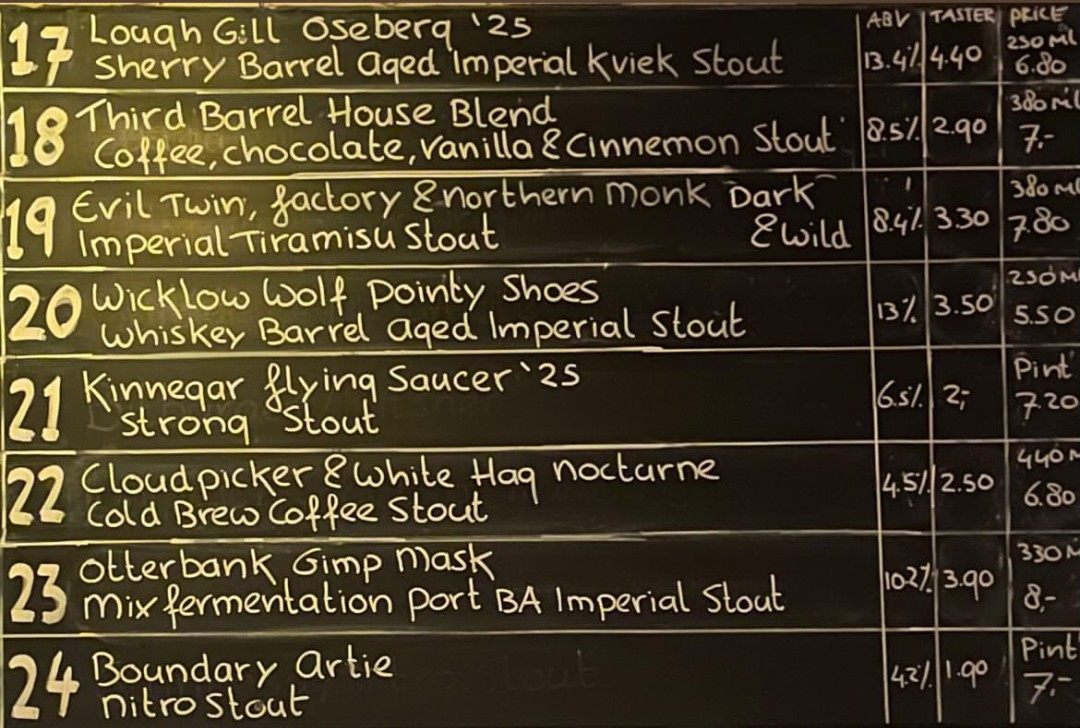 ABV TASTER PRICE
17 Lough Gill Oseberg '25
Sherry Barrel Aged Imperial Kviek Stout 13.4% 4.40 250ml 6.80
18 Third Barrel House Blend
Coffee, chocolate, vanilla & Cinnemon Stout 8.5% 2.90 380ml 7.-
19 Evil Twin, factory & northern monk Dark
Imperial Tiramisu Stout & wild 8.4% 3.30 380ml 7.80
20 Wicklow Wolf Pointy Shoes
Whiskey Barrel Aged Imperial Stout 13% 3.50 250M 5.50
21 Kinnegar flying Saucer '25
Strong Stout 6.5% 2,- Pint 7.20
22 Cloudpicker & White Hag nocturne
Cold Brew Coffee Stout 4.5% 2.50 440M 6.80
23 Otterbank Gimp Mask
Mix fermentation Port BA Imperial Stout 10.2% 3.90 330M 8,-
24 Boundary Artie
nitro Stout 4.2% 1.90 Pint 7.-